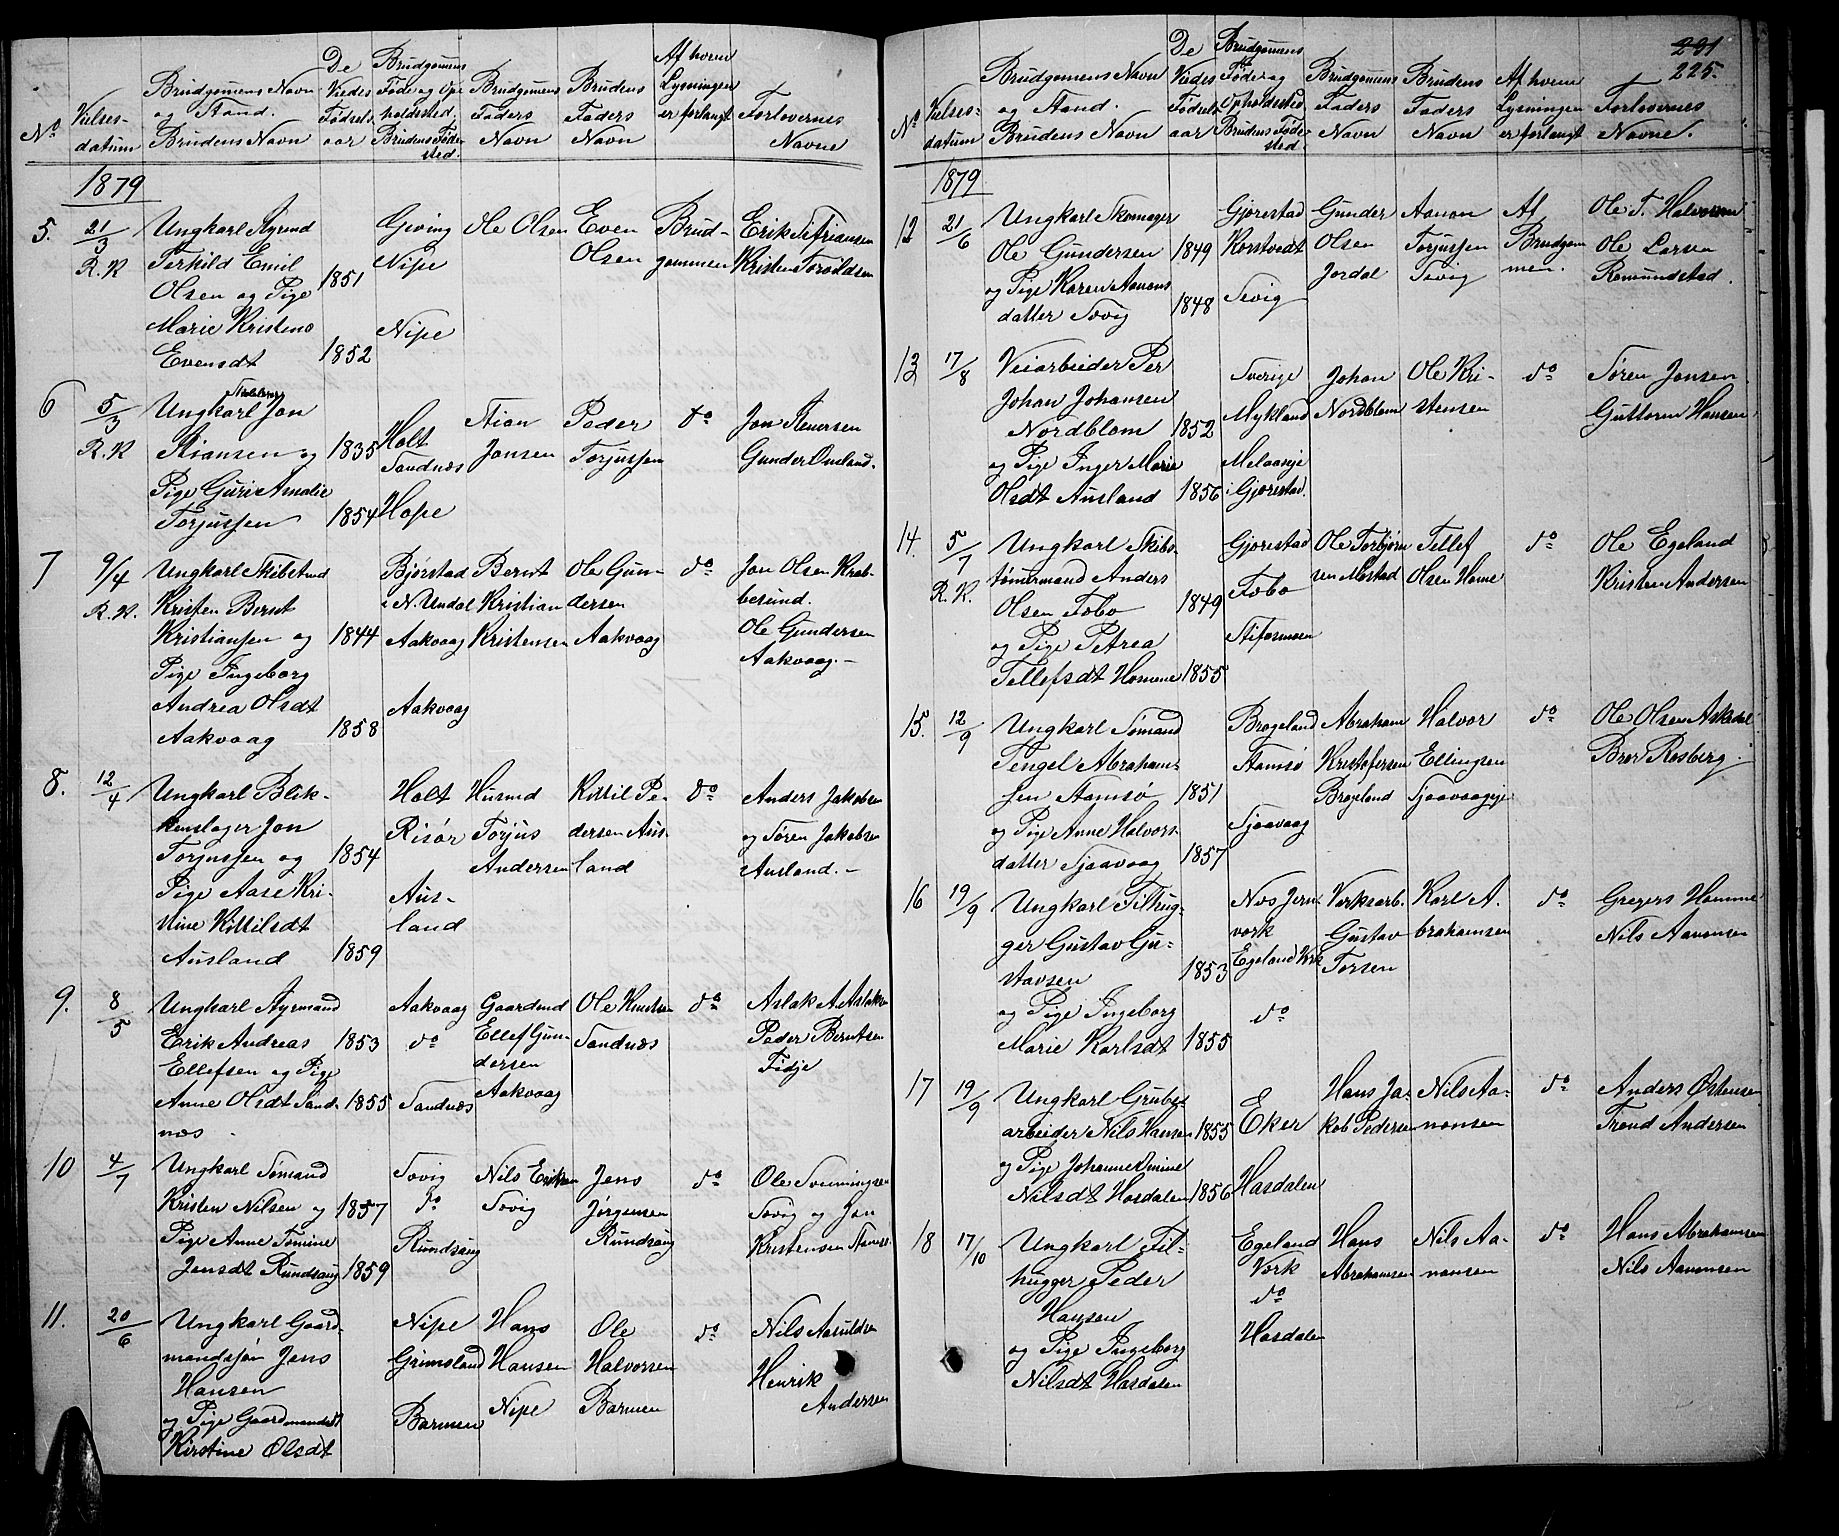 No
Vielses-
datum
Brudgomens Navn
og Stand.
Brudens Navn
De
Viedes
Fødsels
aar
Brudgomens
Føde og Op-
holdssted.
Brudens Føde-
sted.
Brudgomens
Faders
Navn
Brudens
Faders
Navn
Af hvem
Lysningen
er forlangt
Forlovernes
Navne
1879
5.
21/3
R. K
Ungkarl Styrmd
Terkild Emil
Olsen og Pige
Marie Kristens
Evensdt
1851
1852
Gieving
Nipe
Nipe
Ole Olsen
Even
Olsen
Brud-
gommen
Erik
Kristen
6
5/3
R. K
Ungkarl Jon
Stiansen og
Pige Guri Amalie
Torjussen
1835
1854
Holt
Sandnæs
Hope
Stian
Jonsen
Peder
Torjussen
do
Jon Stenersen
Gunder Omland.
7
9/4
R. K.
Ungkarl Skibstmd
Kristen Bernt
Kristiansen og
Pige Ingeborg
Andrea Olsdt
Aakvaag
1844
1858
Bjørstad
i N. Undal
Aakvaag
Aakvaag
Bernt
Kristian
Kristensen
Ole Gun-
dersen
Aakvaag
do
Jon Olsen Krab-
besund.
Ole Gundersen
Aakvaag.-
8.
12/4
Ungkarl Blik-
kenslager Jon
Torjussen og
Pige Aase Kri-
stine Kittilsdt
Ausland
1854
1859
Holt
Risør
Aus-
land
Husmd
Torjus
Andersen
Kittil Pe-
dersen Aus-
land
do
Anders Jakobsen
og Søren Jakobsen
Ausland.-
9.
8/5
Ungkarl Styrmand
Erik Andreas
Ellefsen og Pige
Anne Olsdt Sand-
næs
1853
1855
Aakvaag
do
Sandnæs
Gaardmd
Ellef Gun-
dersen
Aakvaag
Ole Knudsen
Sandnæs
do
Aslak A. Aslaksen
Peder Berntsen
Fidje
10
4/7
Ungkarl Sømand
Kristen Nilsen og
Pige Anne Tomine
Jensdt Rundsaug
1857
1859
Sævig
do
Rundsaug
Nils Eriksen
Sævig
Jens
Jørgensen
Rundsaug
do
Ole Sveningsen
Sævig og Jon
Kristensen
11.
20/6
Ungkarl Gaard-
mandssøn Jens
Hansen
og Pige Gaardmandsdt
Kirstine Olsdt
Nipe
Grimsland
Barmen
Hans
Hansen
Nipe
Ole
Halvorsen
Barmen
do
Nils Aasuldsen
Henrik
Andersen
231
225.
No
Vielses-
datum
Brudgomens Navn
og Stand.
Brudens Navn
De
Viedes
Fødsels
aar
Brudgomens
Føde og
Opholdssted
Brudens Føde-
sted.
Brudgomens
Faders
Navn
Brudens
Faders
Navn
Af hvem
Lysningen
er forlangt
Forlovernes
Navne.
1879
12
21/6
Ungkarl Skomager
Ole Gundersen
og Pige Karen Aanons
datter Sævig
1849
1848
Gjerestad
Korstvedt
Sevig
Gunder
Olsen
Jordal
Aanon
Torjussen
Sevig
Af
Brudgom
men.
Ole T. Halvorsen
Ole Larsen
Romundstad.
13
17/8
Veiarbeider Per
Johan Johansen
Nordblom
og Pige Inger Marie
Olsdt Ausland
1852
1856
Sverige
Mykland
Melaaseje
i Gjerestad.
Johan
Nordblom
Ole Kri-
stensen
do
Søren Jonsen
Guttorm Hansen
14.
5/7
R. K.
Ungkarl Skibs-
tømermand Anders
Olsen Fobo
og Pige Petrea
Tellefsdt Homme
1849
1855
Gjerestad
Fobo
Stifosmoen
Ole Torbjørn
sen Mostad
Tellef
Olsen Home
do
Ole Egeland
Kristen Andersen
15.
12/9
Ungkarl Sømand
Tengel Abraham-
sen Stamsø
og Pige Anne Halvors-
datter Sjaavaag
1851
1857
Brogeland
Stamsø
Sjaavaag
Abraham
Kristofersen
Brogeland
Halvor
Ellingsen
Sjaavaageje
do
Ole Olsen
Bror Rosberg.
16
19/9
Ungkarl Filhug-
ger Gustav Gu-
stavsen
og Pige Ingeborg
Marie Karlsdt
1853
1855
Næs Jern-
værk
Egeland Værk
do
Verksarb.
Gustav
Torsen
Karl A-
brahamsen
do
Gregers Homme
Nils Aanonsen
17
19/9
Ungkarl Grube-
arbeider Nils Hansen
og Pige Johanne Omine
Nilsdt Hasdalen
1855
1856
Eker
Hasdalen
Hans Ja-
kob Pedersen
Nils Aa-
nonsen
do
Anders Østensen
Trond Andersen
18
17/10
Ungkarl Fil-
hugger Peder
Hansen
og Pige Ingeborg
Nilsdt Hasdalen
Egeland
Værk
do
Hasdalen
Hans
Abrahamsen
Nils Aa-
nonsen
do
Hans Abrahamsen
Nils Aanonsen